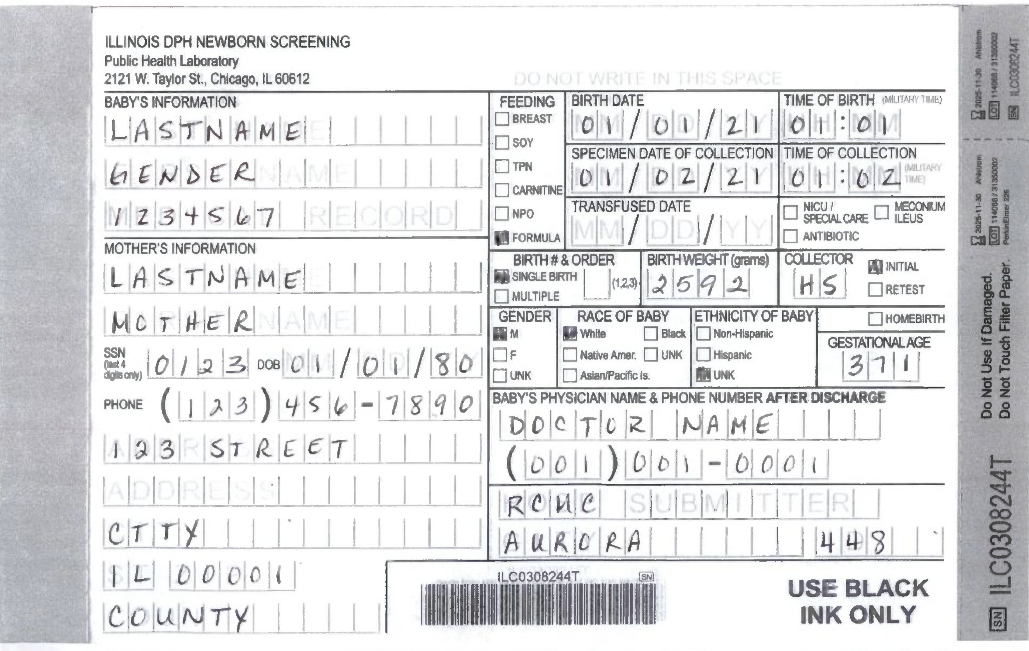 ILLINOIS DPH NEWBORN SCREENING
Public Health Laboratory
2121 W. Taylor St., Chicago, IL 60612
DO NOT WRITE IN THIS SPACE
BABY'S INFORMATION
LASTNAME
GENDER
1234567
MOTHER'S INFORMATION
LASTNAME
MOTHER
SSN (last 4 digits only) 0123 DOB 01/01/80
PHONE (123)456-7890
123 STREET
ADDRESS
CTTY
IL 00001
COUNTY
FEEDING
BREAST
SOY
TPN
CARNITINE
NPO
FORMULA
BIRTH DATE
01/01/21
TIME OF BIRTH (MILITARY TIME)
01:01
SPECIMEN DATE OF COLLECTION
01/02/21
TIME OF COLLECTION
01:02 (MILITARY TIME)
TRANSFUSED DATE
MM/DD/YY
NICU / SPECIAL CARE
MECONIUM ILEUS
ANTIBIOTIC
BIRTH # & ORDER
SINGLE BIRTH (1,2,3)
MULTIPLE
BIRTH WEIGHT (grams)
2592
COLLECTOR
HS
INITIAL
RETEST
GENDER
M
F
UNK
RACE OF BABY
White
Black
Native Amer.
UNK
Asian/Pacific Is.
ETHNICITY OF BABY
Non-Hispanic
Hispanic
UNK
HOMEBIRTH
GESTATIONAL AGE
371
BABY'S PHYSICIAN NAME & PHONE NUMBER AFTER DISCHARGE
DOCTOR NAME
(001)001-0001
RCMC SUBMITTER
AURORA 448
ILC0308244T SN
USE BLACK
INK ONLY
2025-11-30 Ahlstrom
LOT 114068 / 31350002
SN ILC0308244T
2025-11-30 Ahlstrom
LOT 114068 / 31350002
PerkinElmer 226
Do Not Use If Damaged.
Do Not Touch Filter Paper.
SN ILC0308244T